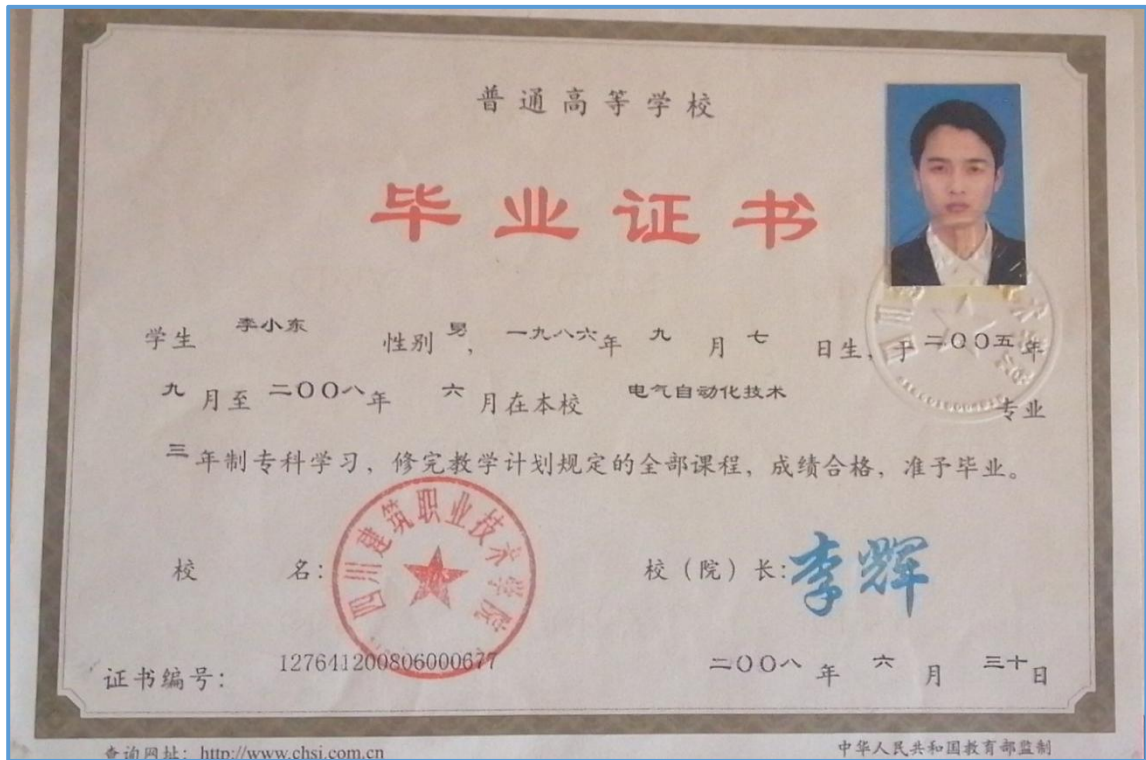 普通高等学校
毕业证书
学生 李小东 性别 男, 一九八六年 九 月 七 日生, 于 二〇〇五年
九 月至 二〇〇八年 六 月在本校 电气自动化技术 专业
三 年制专科学习, 修完教学计划规定的全部课程, 成绩合格, 准予毕业。
校 名: 四川建筑职业技术学院 校(院)长: 李辉
证书编号: 127641200806000677 二〇〇八 年 六 月 三十日
查询网址: http://www.chsi.com.cn 中华人民共和国教育部监制